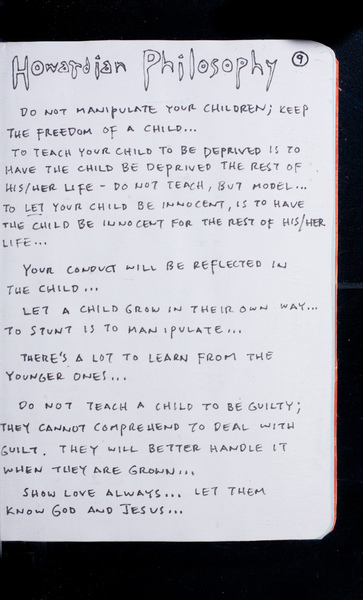 Howardian Philosophy 9
DO NOT MANIPULATE YOUR CHILDREN; KEEP
THE FREEDOM OF A CHILD...
TO TEACH YOUR CHILD TO BE DEPRIVED IS TO
HAVE THE CHILD BE DEPRIVED THE REST OF
HIS/HER LIFE - DO NOT TEACH, BUT MODEL...
TO LET YOUR CHILD BE INNOCENT, IS TO HAVE
THE CHILD BE INNOCENT FOR THE REST OF HIS/HER
LIFE...
YOUR CONDUCT WILL BE REFLECTED IN
THE CHILD...
LET A CHILD GROW IN THEIR OWN WAY...
TO STUNT IS TO MANIPULATE...
THERE'S A LOT TO LEARN FROM THE
YOUNGER ONES...
DO NOT TEACH A CHILD TO BE GUILTY;
THEY CANNOT COMPREHEND TO DEAL WITH
GUILT. THEY WILL BETTER HANDLE IT
WHEN THEY ARE GROWN...
SHOW LOVE ALWAYS... LET THEM
KNOW GOD AND JESUS...